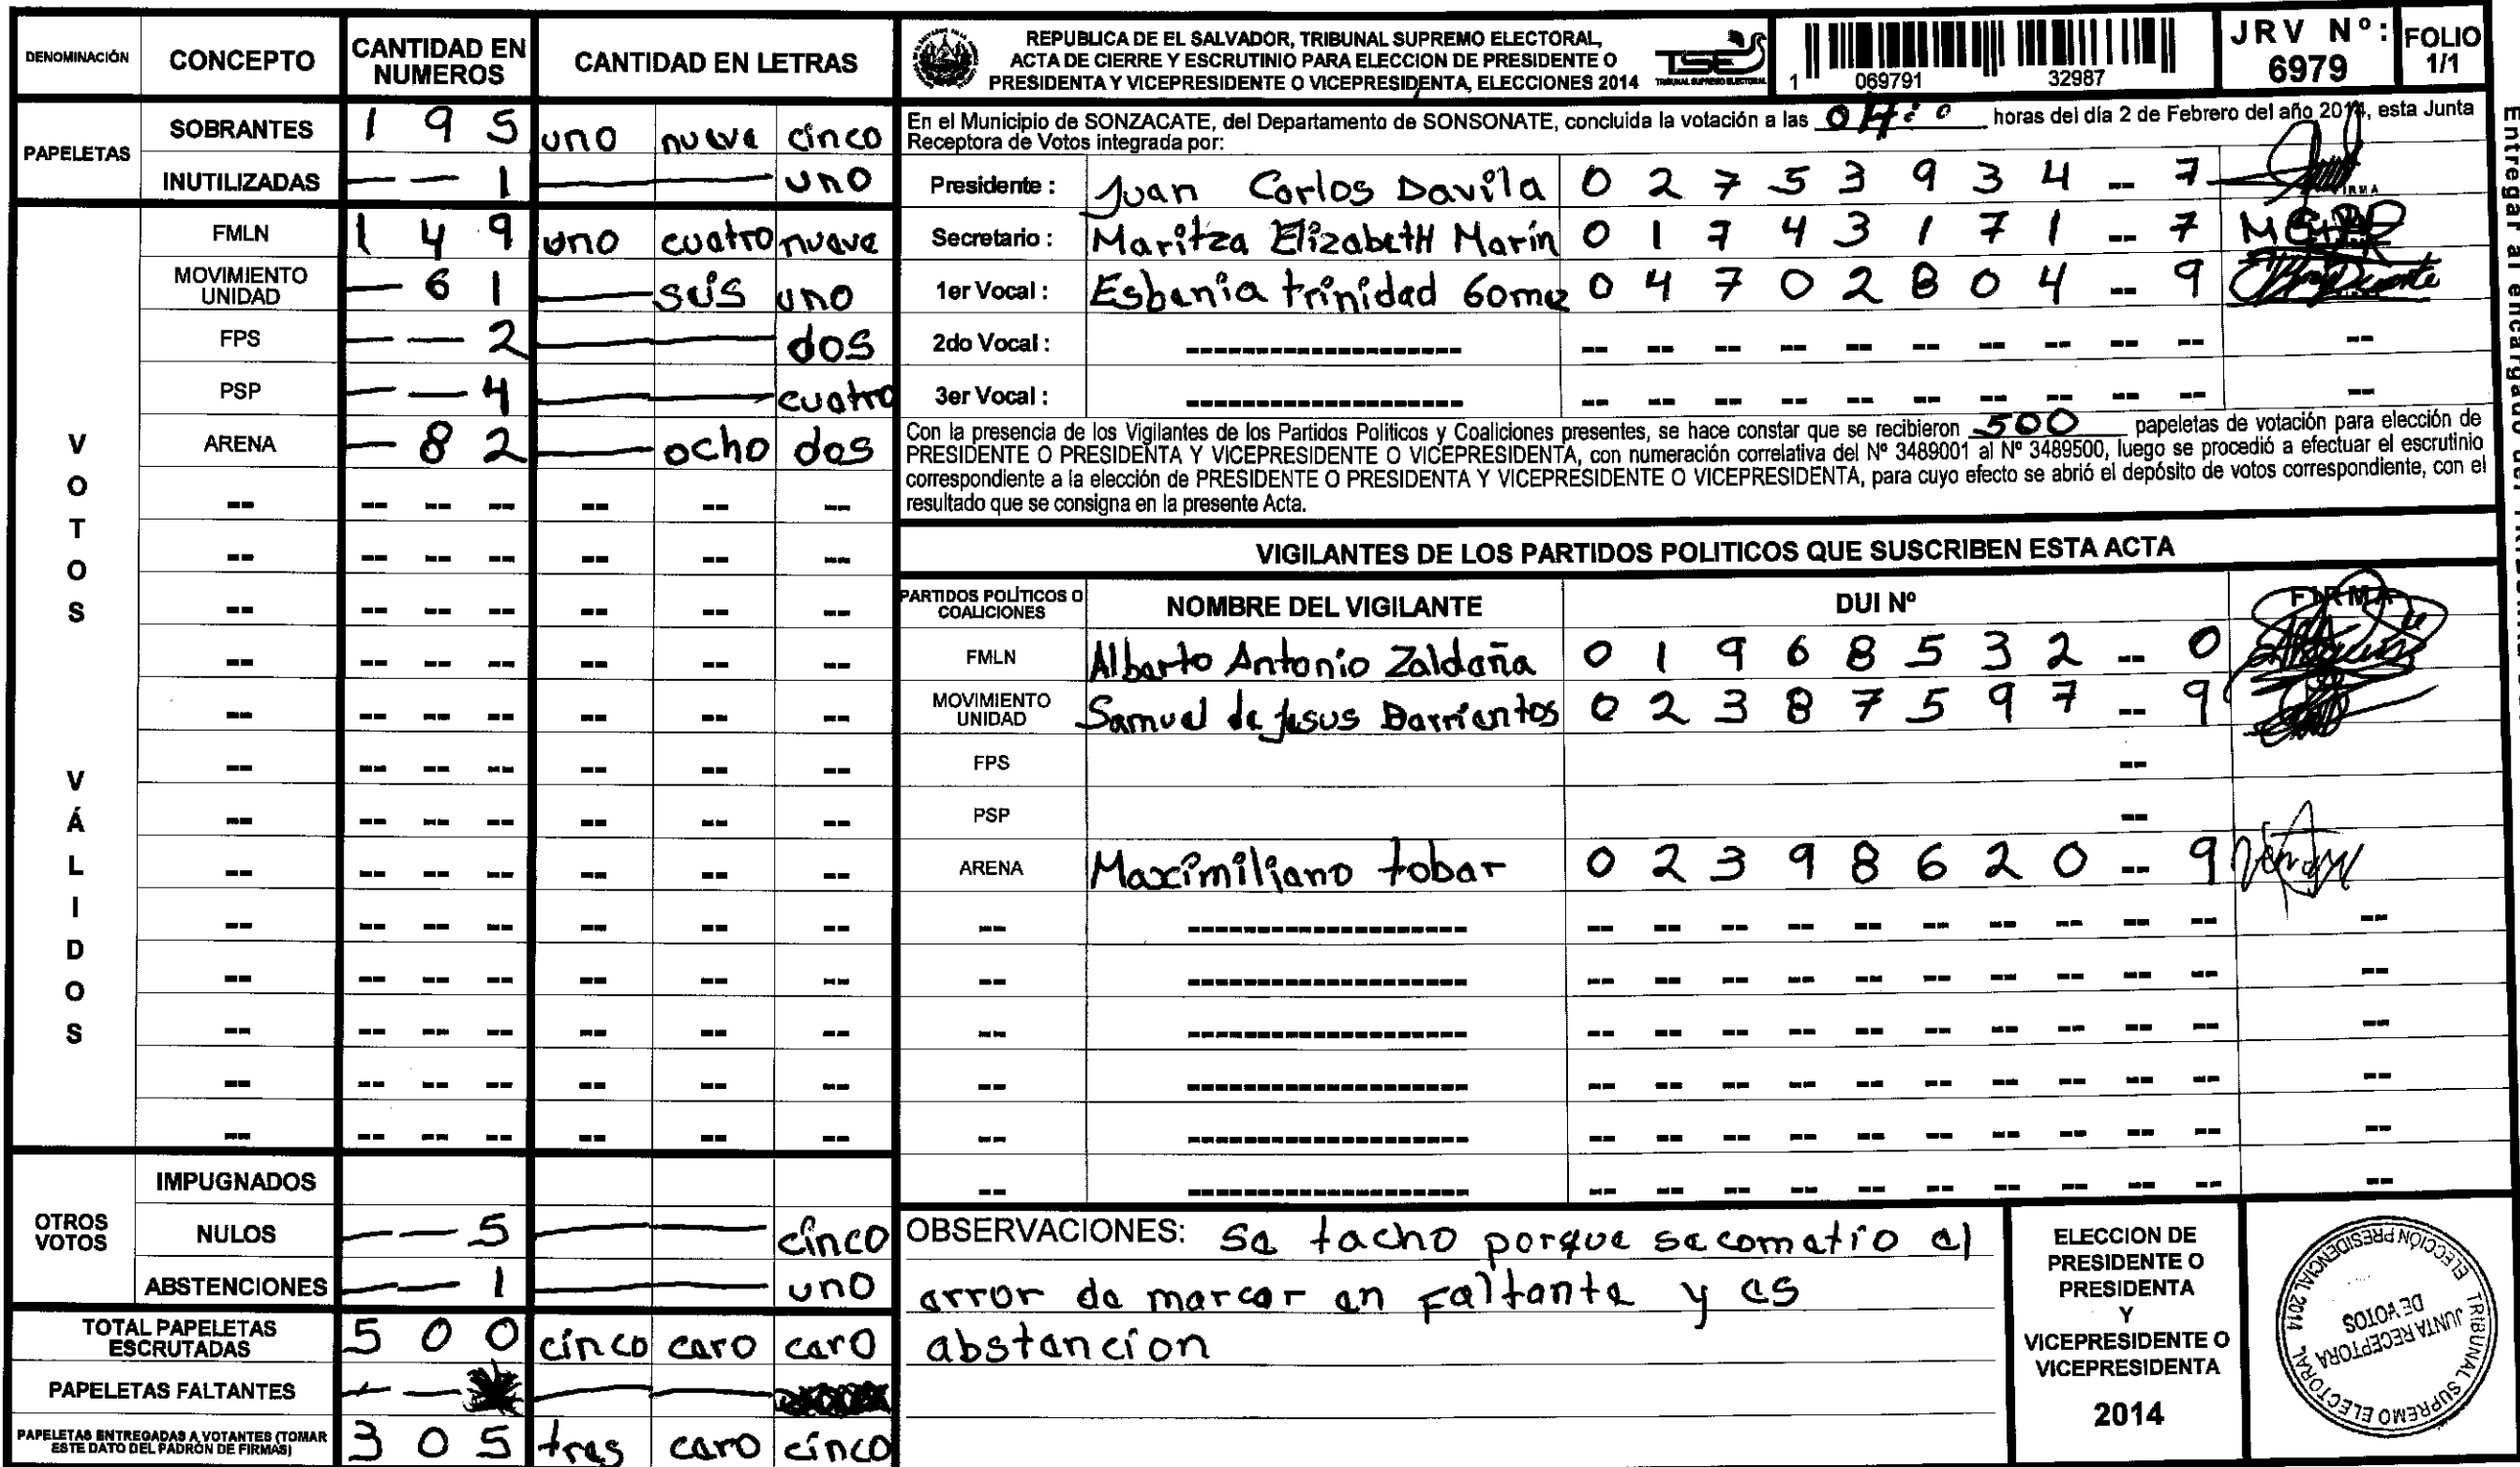 DENOMINACIÓN CONCEPTO CANTIDAD EN NUMEROS CANTIDAD EN LETRAS
PAPELETAS
SOBRANTES 1 9 5 uno nueve cinco
INUTILIZADAS — — 1 uno
VOTOS VÁLIDOS
FMLN 1 4 9 uno cuatro nueve
MOVIMIENTO UNIDAD — 6 1 seis uno
FPS — — 2 dos
PSP — — 4 cuatro
ARENA — 8 2 ocho dos
OTROS VOTOS
IMPUGNADOS
NULOS — — 5 cinco
ABSTENCIONES — — 1 uno
TOTAL PAPELETAS ESCRUTADAS 5 0 0 cinco caro caro
PAPELETAS FALTANTES — —
PAPELETAS ENTREGADAS A VOTANTES (TOMAR ESTE DATO DEL PADRÓN DE FIRMAS) 3 0 5 tres caro cinco
REPUBLICA DE EL SALVADOR, TRIBUNAL SUPREMO ELECTORAL,
ACTA DE CIERRE Y ESCRUTINIO PARA ELECCION DE PRESIDENTE O
PRESIDENTA Y VICEPRESIDENTE O VICEPRESIDENTA, ELECCIONES 2014
TSE
TRIBUNAL SUPREMO ELECTORAL
1 069791 32987
JRV Nº: 6979
FOLIO 1/1
En el Municipio de SONZACATE, del Departamento de SONSONATE, concluida la votación a las horas del día 2 de Febrero del año 2014, esta Junta
Receptora de Votos integrada por:
Presidente : Juan Carlos Davila 0 2 7 5 3 9 3 4 -- 7
FIRMA
Secretario : Maritza Elizabeth Marín 0 1 7 4 3 1 7 1 -- 7
1er Vocal : Esbenia trinidad Gome 0 4 7 0 2 8 0 4 -- 9
2do Vocal :
3er Vocal :
Con la presencia de los Vigilantes de los Partidos Políticos y Coaliciones presentes, se hace constar que se recibieron 500 papeletas de votación para elección de
PRESIDENTE O PRESIDENTA Y VICEPRESIDENTE O VICEPRESIDENTA, con numeración correlativa del Nº 3489001 al Nº 3489500, luego se procedió a efectuar el escrutinio
correspondiente a la elección de PRESIDENTE O PRESIDENTA Y VICEPRESIDENTE O VICEPRESIDENTA, para cuyo efecto se abrió el depósito de votos correspondiente, con el
resultado que se consigna en la presente Acta.
VIGILANTES DE LOS PARTIDOS POLITICOS QUE SUSCRIBEN ESTA ACTA
PARTIDOS POLÍTICOS O COALICIONES NOMBRE DEL VIGILANTE DUI Nº FIRMA
FMLN Alberto Antonio Zaldaña 0 1 9 6 8 5 3 2 -- 0
MOVIMIENTO UNIDAD Samuel de Jesus Barrientos 0 2 3 8 7 5 9 7 -- 9
FPS --
PSP --
ARENA Maximiliano tobar 0 2 3 9 8 6 2 0 -- 9
OBSERVACIONES: Se tacho porque se cometio el
error de marcar en Faltante y es
abstencion
ELECCION DE
PRESIDENTE O
PRESIDENTA
Y
VICEPRESIDENTE O
VICEPRESIDENTA
2014
TRIBUNAL SUPREMO ELECTORAL
ELECCIÓN PRESIDENCIAL 2014
JUNTA RECEPTORA
DE VOTOS
Entregar al encargado del